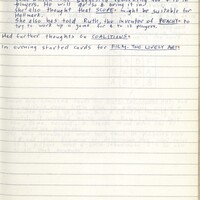 players. He will try to bring it in.
She also thought that SLOPE might be suitable for
Hallmark.
She also has told Ruth, the inventor of PEAKS, to
try to work up a game for 8 to 12 players.
Had further thoughts on COALITIONS.
In evening started cards for FILM: THE LIVELY ART.